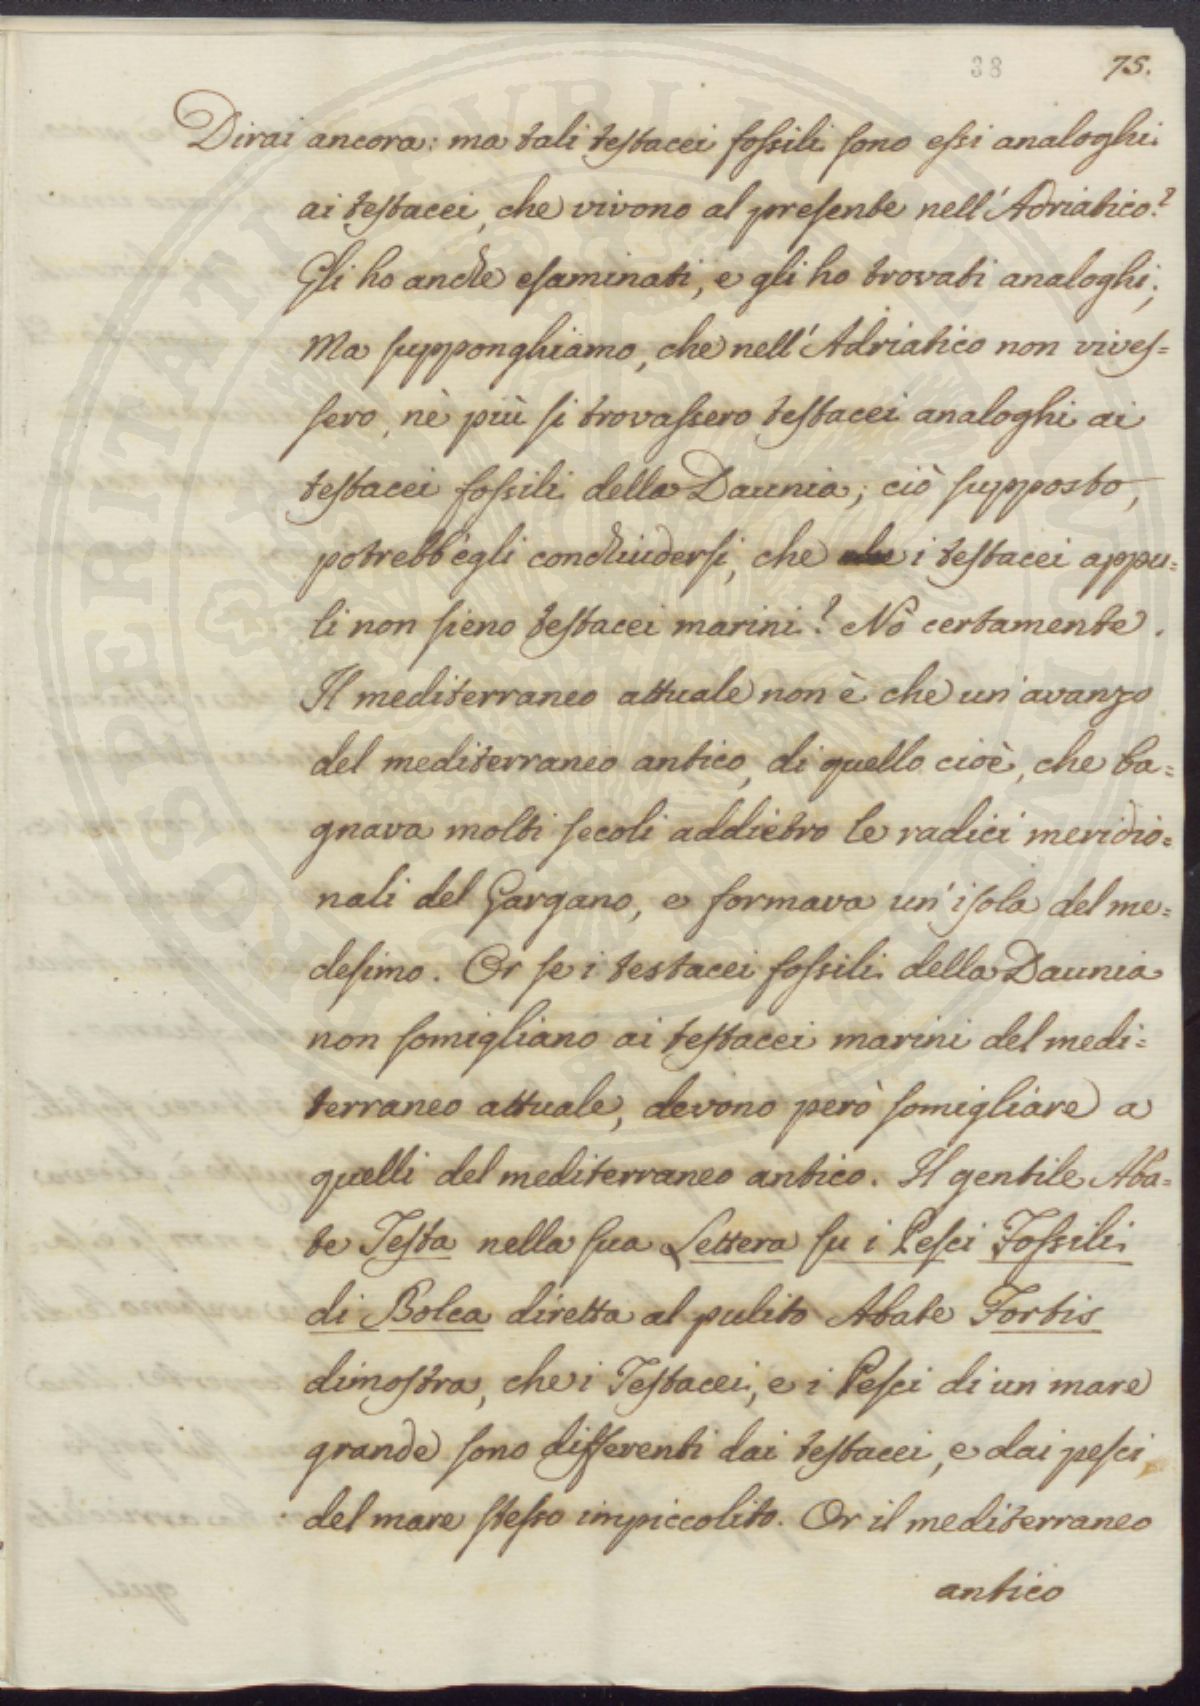 38 75.
Dirai ancora: ma tali testacei fossili sono essi analoghi
ai testacei, che vivono al presente nell'Adriatico?
Gli ho anche esaminati, e gli ho trovati analoghi;
Ma supponghiamo, che nell'Adriatico non vives=
sero, nè più si trovassero testacei analoghi ai
testacei fossili della Daunia; ciò supposto,
potrebb'egli conchiudersi, che i testacei appu=
li non sieno testacei marini? Nò certamente.
Il mediterraneo attuale non è che un'avanzo
del mediterraneo antico, di quello cioè, che ba=
gnava molti secoli addietro le radici meridio=
nali del Gargano, e formava un'isola del me=
desimo. Or se i testacei fossili della Daunia
non somigliano ai testacei marini del medi=
terraneo attuale, devono però somigliare a
quelli del mediterraneo antico. Il gentile Aba=
te Testa nella sua Lettera su i Pesci Fossili
di Bolca diretta al pulito Abate Fortis
dimostra, che i Testacei, e i Pesci di un mare
grande sono differenti dai testacei, e dai pesci
del mare stesso impiccolito. Or il mediterraneo
antico
PROSPERITATI PUBLICAE